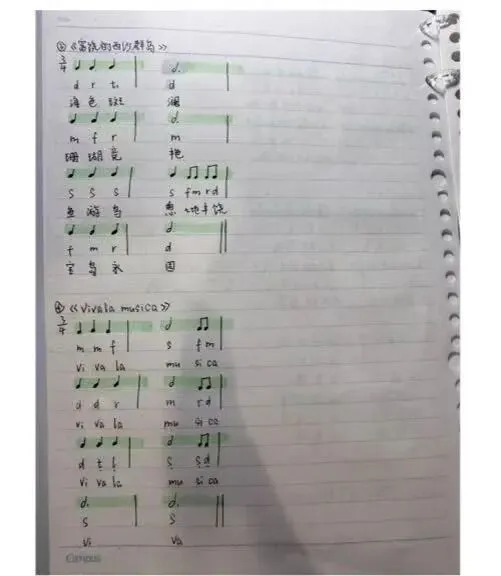 ②《富饶的西沙群岛》
3/4 ♩ ♩ ♩ | 𝅗𝅥. |
d r t, d
海 色 斑 斓
♩ ♩ ♩ | 𝅗𝅥. |
m f r m
珊 瑚 竞 艳
♩ ♩ ♩ | ♩ ♫ ♫ |
s s s s fm rd
鱼 游 鸟 憩 地丰饶
♩ ♩ ♩ | 𝅗𝅥. ‖
f m r d
宝 岛 永 固
《Viva la musica》
3/4 ♩ ♩ ♩ | 𝅗𝅥 ♫ |
m m f s fm
vi va la mu si ca
♩ ♩ ♩ | 𝅗𝅥 ♫ |
d d r m rd
vi va la mu si ca
♩ ♩ ♩ | 𝅗𝅥 ♫ |
d t, l, s, s,d
vi va la mu si ca
𝅗𝅥. | 𝅗𝅥. ‖
s s
vi va
Campus